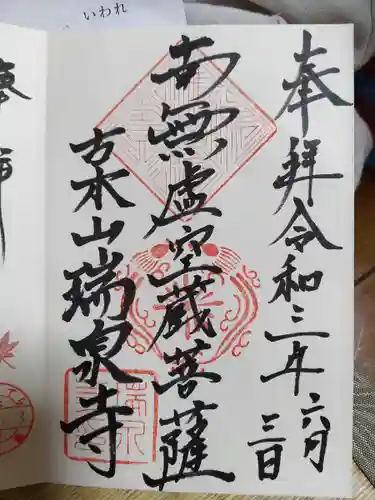 いわれ
奉拝 令和三年六月
三日
南無虚空蔵菩薩
吉木山瑞泉寺
奉拝